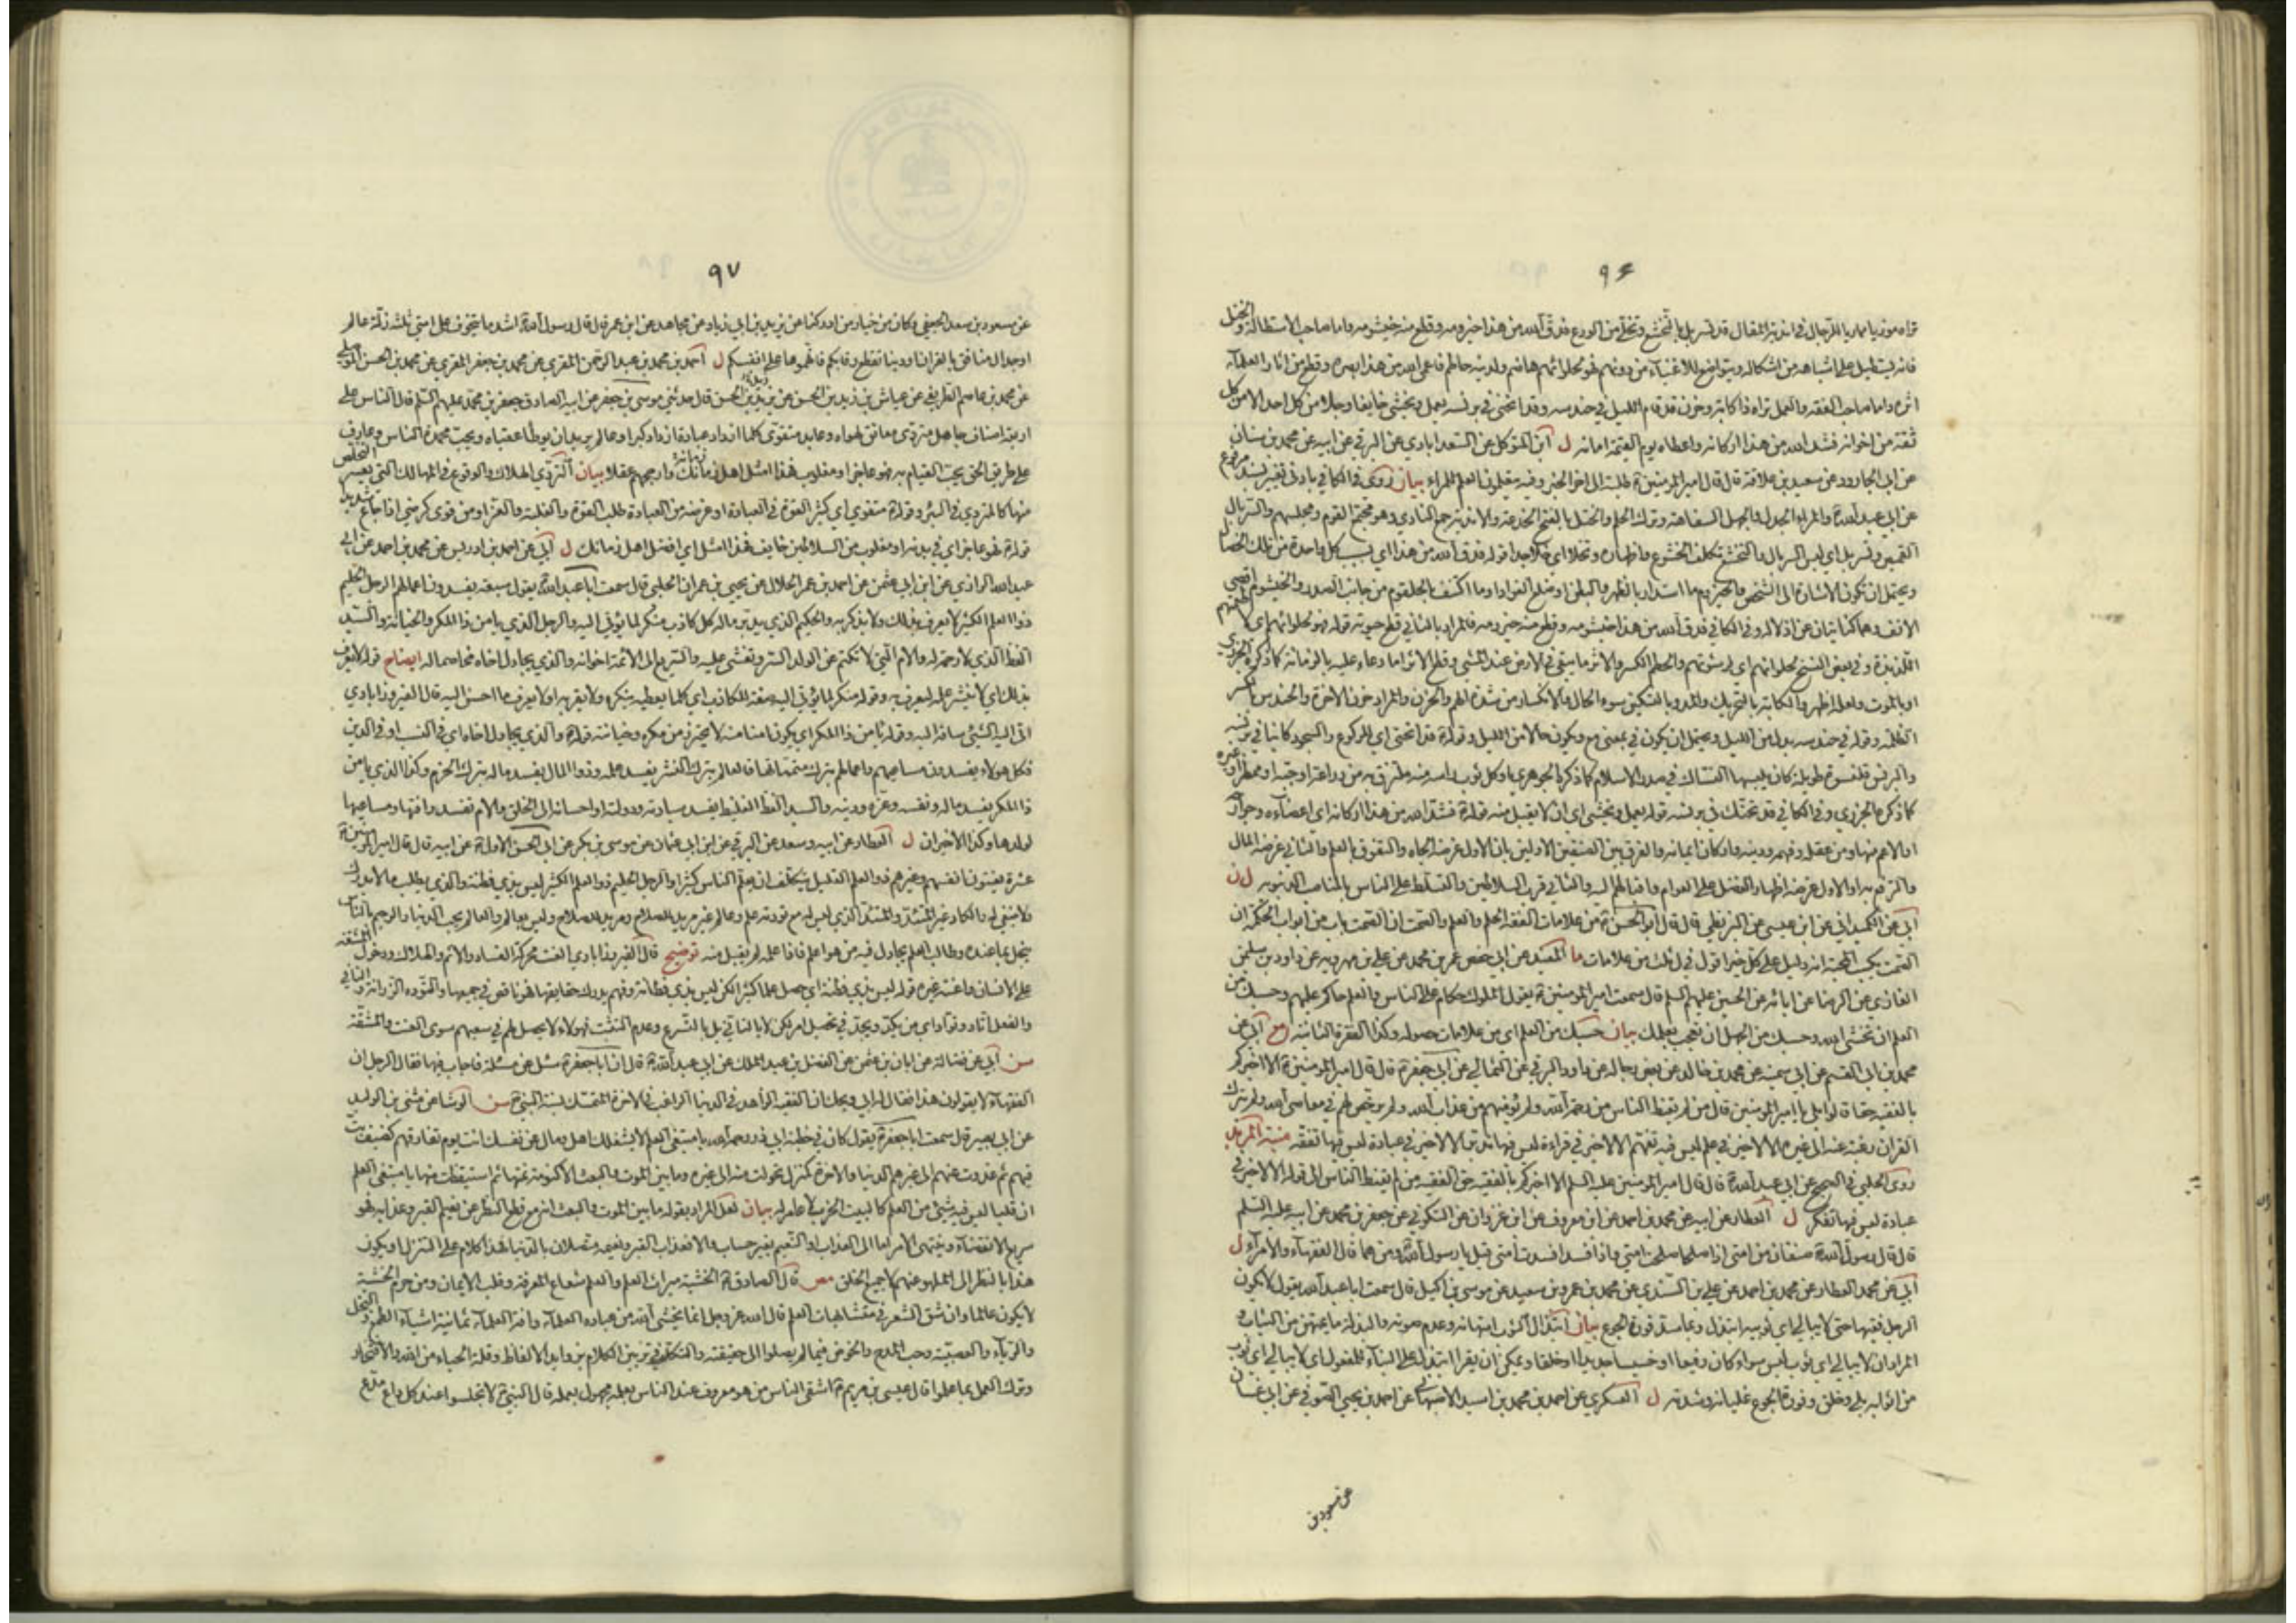 ٩۶
تراه موذيا مماريا للرجال في اندية المقال قد تسربل بالتخشع وتخلا من الورع فدق الله من هذا حيزومه وقطع منه خيشومه واما صاحب الاستطالة والختل
فانه يستطيل على اشباهه من اشكاله ويتواضع للاغنياء من دونهم فهو لحلوائهم هاضم ولدينه حاطم فاعمى الله من هذا بصره وقطع من اثار العلماء
اثره واما صاحب الفقه والعمل تراه ذا كابة وحزن قد قام الليل في حندسه وقد انحنى في برنسه يعمل ويخشى خايفا وجلا من كل احد الا من كل
ثقة من اخوانه فشد الله من هذا اركانه واعطاه يوم القيمة امانه ل ابن المتوكل عن السعدابادي عن البرقي عن ابيه عن محمد بن سنان
عن ابي الجارود عن سعيد بن علاقة قال قال امير المؤمنين ع طلبة الى اخر الخبر وفيه يتعلمون العلم للمراء بيان روى في الكافي بادنى تغيير بسند مرفوع
عن ابي عبد الله ع والمراء الجدل والجهل السفاهة وترك الحلم والختل بالفتح الخدعة والاندية جمع النادي وهو مجتمع القوم ومجلسهم والسربال
القميص وتسربل اي لبس السربال والتخشع تكلف الخشوع واظهاره وتخلا اي خلا جدا قوله فدق الله من هذا اي بسبب كل واحدة من تلك الخصال
ويحتمل ان تكون الاشارة الى الشخص والحيزوم ما استدار بالظهر والبطن او ضلع الفؤاد او ما اكتنف بالحلقوم من جانب الصدر والخيشوم اقصى
الانف وهما كنايتان عن اذلاله وفي الكافي فدق الله من هذا خيشومه وقطع منه حيزومه فالمراد بالثاني قطع حيوته قوله فهو لحلوائهم اي لاطعمتهم
اللذيذة وفي بعض النسخ لحلوانهم اي لرشوتهم والحطم الكسر والاثر ما يبقى في الارض عند المشي وقطع الاثر اما دعاء عليه بالزمانة كما ذكره الجزري
او بالموت ولعله اظهر والكابة بالتحريك والمد وبالتسكين سوء الحال والانكسار من شدة الهم والحزن والمراد حزن الاخرة والحندس بالكسر
الظلمة وقوله في حندسه بدل من الليل ويحتمل ان يكون في بمعنى مع ويكون حالا من الليل وقوله ع قد انحنى اي للركوع والسجود كاينا في برنسه
والبرنس قلنسوة طويلة كان يلبسها النساك في صدر الاسلام كما ذكره الجوهري او كل ثوب راسه منه ملتزق به من دراعة او جبة او ممطر او غيره
كما ذكره الجزري وفي الكافي قد تحنك في برنسه قوله يعمل ويخشى اي ان لا يقبل منه قوله ع فشد الله من هذا اركانه اي اعضاءه وجوارحه
او الاعم منها ومن عقله وفهمه ودينه واركان ايمانه والفرق بين الصنفين الاولين بان الاول غرضه الجاه والتفوق بالعلم والثاني غرضه المال
والترفع به او الاول غرضه اظهار الفضل على العوام واقبالهم اليه والثاني قرب السلاطين والتسلط على الناس بالمناصب الدنيوية ل ن
ابي عن الكميداني عن ابن عيسى عن البزنطي قال قال ابو الحسن ع من علامات الفقه الحلم والعلم والصمت ان الصمت باب من ابواب الحكمة ان
الصمت يكسب المحبة انه دليل على كل خير اقول في ذلك من علامات ما المفيد عن ابي حفص عمر بن محمد عن علي بن مهرويه عن داود بن سليمن
الغازي عن الرضا عن ابائه عن الحسين عليهم السلم قال سمعت امير المومنين ع يقول الملوك حكام على الناس والعلم حاكم عليهم وحسبك من
العلم ان تخشى الله وحسبك من الجهل ان تعجب بعلمك بيان حسبك من العلم اي من علامات حصوله وكذا الفقرة الثانية مع ابي عن
محمد بن ابي القسم عن ابي سمينة عن محمد بن خالد عن بعض رجاله عن داود الرقي عن الثمالي عن ابي جعفر ع قال قال امير المومنين ع الا اخبركم
بالفقيه حقا قالوا بلى يا امير المومنين قال من لم يقنط الناس من رحمة الله ولم يؤمنهم من عذاب الله ولم يرخص لهم في معاصي الله ولم يترك
القران رغبة عنه الى غيره الا لا خير في علم ليس فيه تفهم الا لا خير في قراءة ليس فيها تدبر الا لا خير في عبادة ليس فيها تفقه منية المريد
روى الحلبي في الصحيح عن ابي عبد الله ع قال قال امير المومنين عليه السلم الا اخبركم بالفقيه حق الفقيه من لم يقنط الناس الى قوله الا لا خير في
عبادة ليس فيها تفكر ل العطار عن ابيه عن محمد بن احمد عن ابن معروف عن ابن غزوان عن السكوني عن جعفر بن محمد عن ابيه عليه السلم
قال قال رسول الله ص صنفان من امتي اذا صلحا صلحت امتي واذا فسدا فسدت امتي قيل يا رسول الله ومن هما قال الفقهاء والامراء ل
ابي عن محمد العطار عن محمد بن احمد عن علي بن السندي عن محمد بن عمرو بن سعيد عن موسى بن اكيل قال سمعت ابا عبد الله يقول لا يكون
الرجل فقيها حتى لا يبالي اي ثوبيه ابتذل وبما سد فورة الجوع بيان ابتذال الثوب امتهانه وعدم صونه والبذلة ما يمتهن من الثياب و
المراد ان لا يبالي اي ثوب لبس سواء كان رفيعا او خسيسا جديدا او خلقا ويمكن ان يقرا ابتذل على البناء للمفعول اي لا يبالي اي ثوب
من اثوابه بلي وخلق وفورة الجوع غليانه وشدته ل العسكري عن احمد بن محمد بن اسيد الاصبهاني عن احمد بن يحيى الصوفي عن ابي غسان
عن مسعود بن
٩٧
عن مسعود بن سعد الجعفي وكان من خيار من ادركنا عن يزيد بن ابي زياد عن مجاهد عن ابن عمر قال قال رسول الله ص اشد ما يتخوف على امتي ثلثة زلة عالم
او جدال منافق بالقران او دنيا تقطع رقابكم فاتهموها على انفسكم ل احمد بن محمد بن عبد الرحمن المقري عن محمد بن جعفر المقري عن محمد بن الحسن الموصلي
عن محمد بن عاصم الطريفي عن عياش بن زيد بن الحسن عن يزيد بن الحسن قال حدثني موسى بن جعفر عن ابيه الصادق جعفر بن محمد عليهم السلم قال الناس على
اربعة اصناف جاهل متردى معانق لهواه وعابد متقوى كلما ازداد عبادة ازداد كبرا وعالم يريد ان يوطا عقباه ويحب محمدة الناس وعارف
على طريق الحق يحب القيام به فهو عاجز او مغلوب فهذا امثل اهل زمانك وارجحهم عقلا بيان التردي الهلاك والوقوع في المهالك التي يعسر التخلص
منها كالمتردي في البئر وقوله ع متقوي اي كثير القوة في العبادة او غرضه من العبادة طلب القوة والغلبة والعز او من قوى كرضي اذا جاع شديدا
قوله ع فهو عاجز اي في بدنه او مغلوب من السلاطين خايف فهذا امثل اي افضل اهل زمانك ل ابي عن احمد بن ادريس عن محمد بن احمد عن ابي
عبد الله الرازي عن ابن ابي عثمن عن احمد بن عمر الحلال عن يحيى بن عمران الحلبي قال سمعت ابا عبد الله ع يقول سبعة يفسدون اعمالهم الرجل الحليم
ذو العلم الكثير لا يعرف بذلك ولا يذكر به والحكيم الذي يدبر ماله كل كاذب منكر لما يؤتى اليه والرجل الذي يامن ذا المكر والخيانة والسيد
الفظ الذي لا رحمة له والام التي لا تكتم عن الولد السر وتفشي عليه والسريع الى لائمة اخوانه والذي يجادل اخاه مخاصما له ايضاح قوله لا يعرف
بذلك اي لا ينشر علمه ليعرف به وقوله منكر لما يؤتى اليه صفة للكاذب اي كلما يعطيه ينكره ولا يقر به او لا يعرف ما احسن اليه قال الفيروزابادي
اتى اليه الشئ ساقه اليه وقوله يامن ذا المكر اي يكون امنا منه لا يحترز من مكره وخيانته قوله ع والذي يجادل اخاه اي في النسب او في الدين
فكل هولاء يفسدون مساعيهم واعمالهم بترك متمماتها فالعالم بترك النشر يفسد علمه وذو المال يفسد ماله بترك الحزم وكذا الذي يامن
ذا المكر يفسد ماله ونفسه وعزه ودينه والسيد الفظ الغليظ يفسد سيادته ودولته او احسانه الى الخلق والام تفسد رافتها ومساعيها
لولدها وكذا الاخيران ل العطار عن ابيه وسعد عن البرقي عن ابن ابي عثمان عن موسى بن بكر عن ابي الحسن الاول ع عن ابيه قال قال امير المومنين ع
عشرة يعنتون انفسهم وغيرهم ذو العلم القليل يتكلف ان يعلم الناس كثيرا والرجل الحليم ذو العلم الكثير ليس بذي فطنة والذي يطلب ما لا يدرك
ولا ينبغي له والكاد غير المتئد والمتئد الذي ليس له مع تودته علم وعالم غير مريد للصلاح ومريد للصلاح وليس بعالم والعالم يحب الدنيا والرحيم بالناس
يبخل بما عنده وطالب العلم يجادل فيه من هو اعلم فاذا علمه لم يقبل منه توضيح قال الفيروزابادي العنت محركة الفساد والاثم والهلاك ودخول المشقة
على الانسان واعنته غيره قوله ليس بذي فطنة اي حصل علما كثيرا لكن ليس بذي فطانة وفهم يدرك حقايقها فهو ناقص في جميعها والتؤدة الرزانة والتاني
والفعل اتاد وتواد اي من يكد ويجد في تحصيل امر لكن لا بالتاني بل بالتسرع وعدم التثبت فهؤلاء لا يحصل لهم في سعيهم سوى العنت والمشقة
سن ابي عن فضالة عن ابان بن عثمن عن الفضل بن عبد الملك عن ابي عبد الله ع قال ان ابا جعفر ع سئل عن مسئلة فاجاب فيها فقال الرجل ان
الفقهاء لا يقولون هذا فقال له ابي ويحك ان الفقيه الزاهد في الدنيا الراغب في الاخرة المتمسك بسنة النبي ص سن الوشا عن مثنى بن الوليد
عن ابي بصير قال سمعت ابا جعفر ع يقول كان في خطبة ابي ذر رحمه الله يا مبتغي العلم لا يشغلك اهل ومال عن نفسك انت يوم تفارقهم كضيف بت
فيهم ثم غدوت عنهم الى غيرهم الدنيا والاخرة كمنزل تحولت منه الى غيره وما بين الموت والبعث الا كنومة نمتها ثم استيقظت منها يا مبتغي العلم
ان قلبا ليس فيه شئ من العلم كالبيت الخرب لا عامر له بيان لعل المراد بقوله ما بين الموت والبعث انه مع قطع النظر عن نعيم القبر وعذابه فهو
سريع الانقضاء وينتهي الامر اما الى العذاب او النعيم بغير حساب والا فعذاب القبر ونعيمه متصلان بالدنيا فهذا كلام على التنزل او يكون
هذا بالنظر الى الملهو عنهم لا جميع الخلق مص قال الصادق ع الخشية ميراث العلم والعلم شعاع المعرفة وقلب الايمان ومن حرم الخشية
لا يكون عالما وان شق الشعر في متشابهات العلم قال الله عز وجل انما يخشى الله من عباده العلماء وافة العلماء ثمانية اشياء الطمع والبخل
والرياء والعصبية وحب المدح والخوض فيما لم يصلوا الى حقيقته والتكلف في تزيين الكلام بزوايد الالفاظ وقلة الحياء من الله والافتخار
وترك العمل بما علموا قال عيسى بن مريم ع اشقى الناس من هو معروف عند الناس بعلمه مجهول بعمله قال النبي ص لا تجلسوا عند كل داع مدع